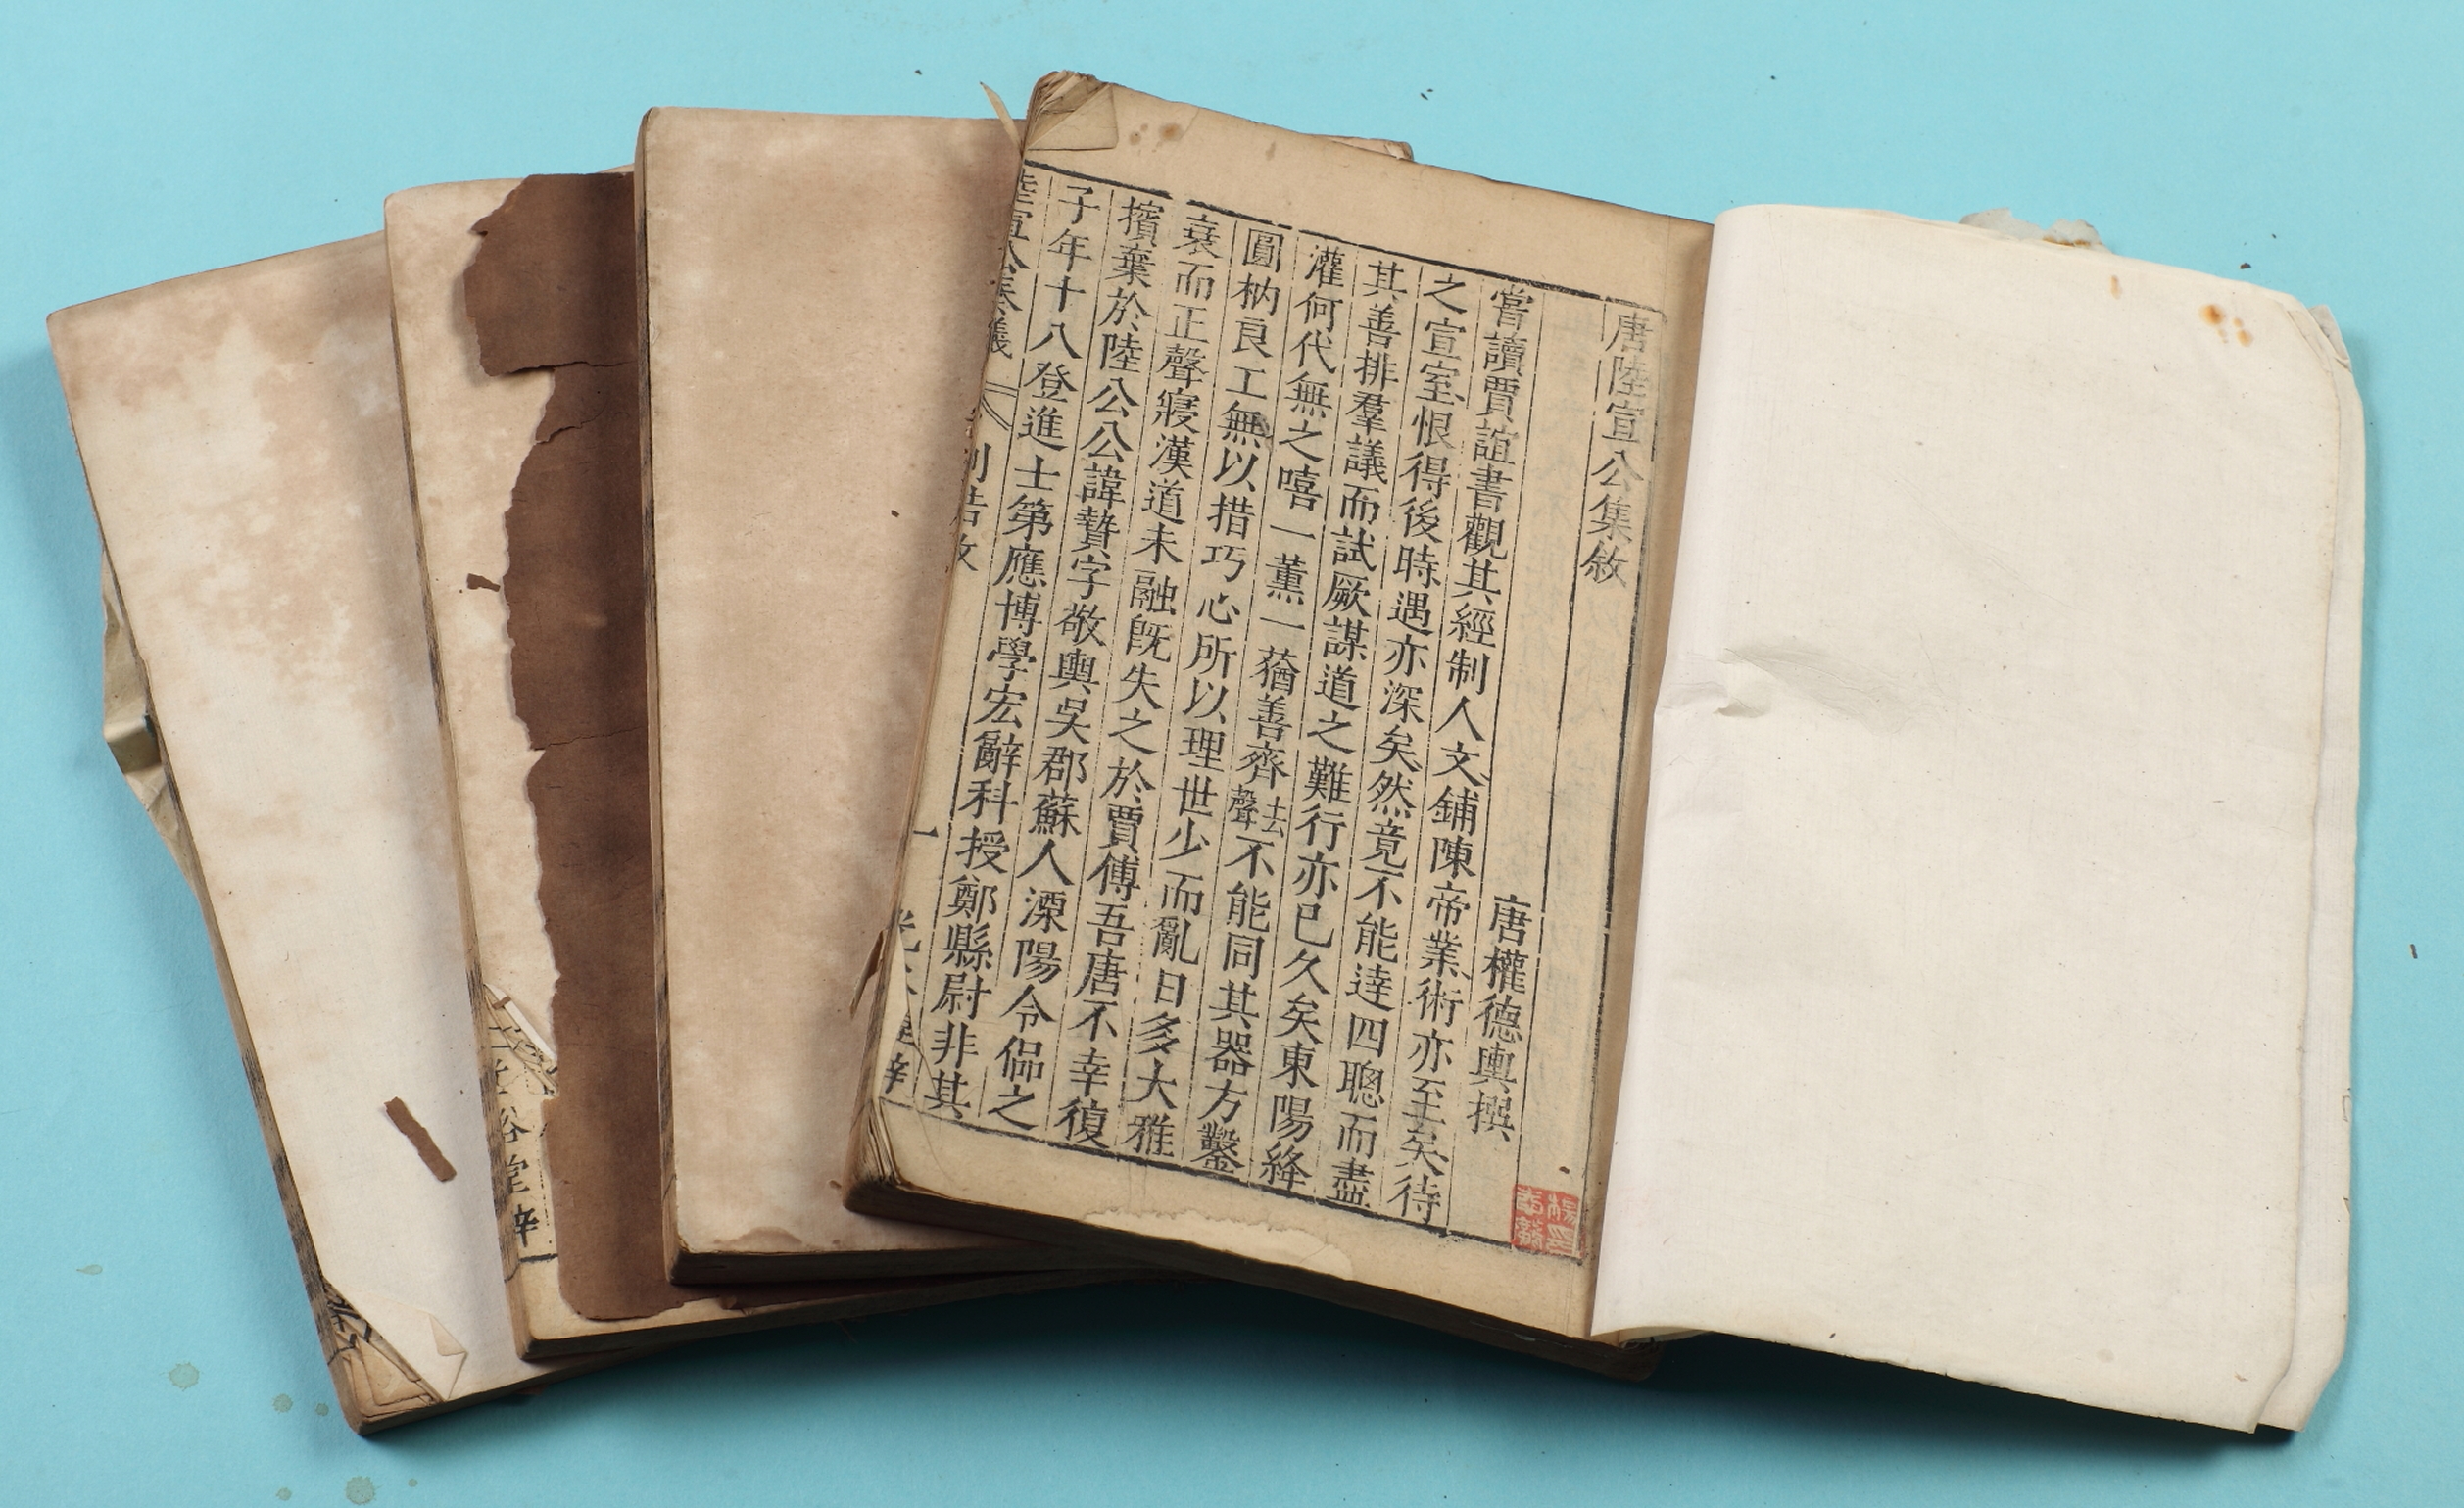 唐陸宣公集敘
唐權德輿撰
嘗讀賈誼書觀其經制人文鋪陳帝業術亦至矣待
之宣室恨得後時遇亦深矣然竟不能達四聰而盡
其善排羣議而試厥謀道之難行亦已久矣東陽絳
灌何代無之嘻一薰一蕕善齊去聲不能同其器方鑿
圓枘良工無以措巧心所以理世少而亂日多大雅
衰而正聲寢漢道未融旣失之於賈傅吾唐不幸復
擯棄於陸公公諱贄字敬輿吳郡蘇人溧陽令偘之
子年十八登進士第應博學宏辭科授鄭縣尉非其
陸宣公奏議
一